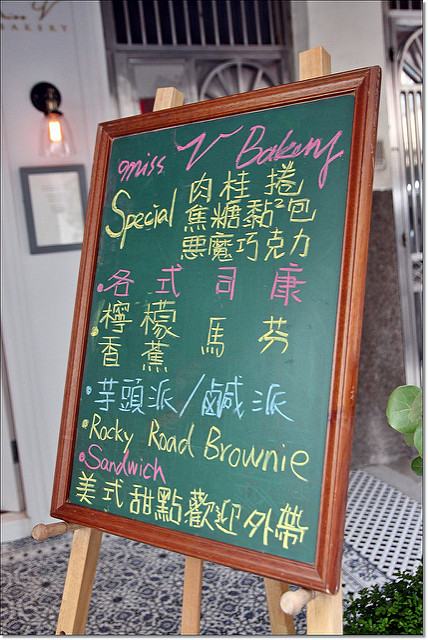 BAKERY
miss V Bakery
Special 肉桂捲
焦糖黏²包
惡魔巧克力
·各式司康
·檸檬馬芬
香蕉
·芋頭派/鹹派
·Rocky Road Brownie
·Sandwich
美式甜點歡迎外帶